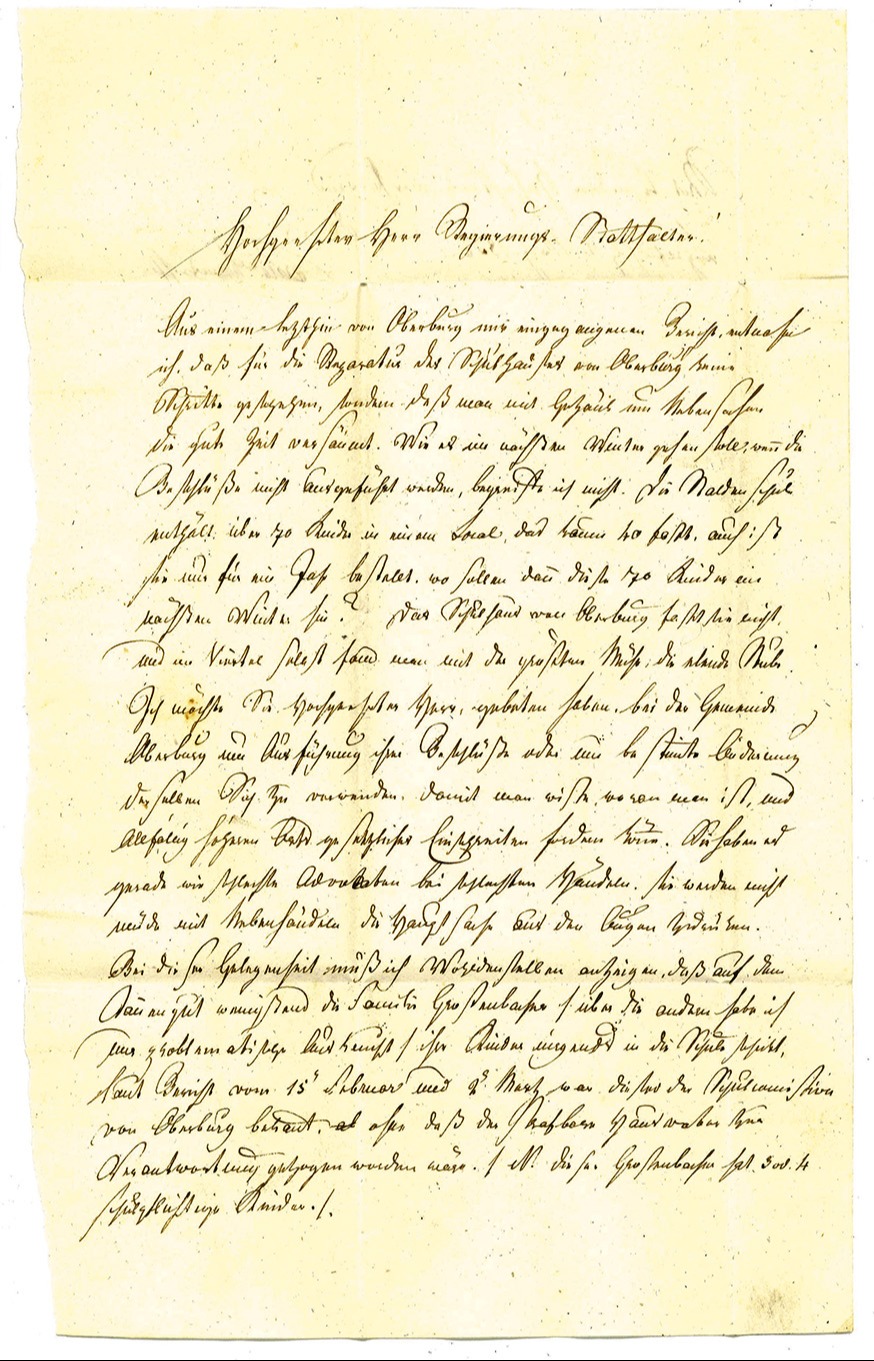 Hochgeehrter Herr Regierungs-Statthalter!
Aus einem letzthin von Oberburg mir eingegangenen Bericht, entnahm
ich, daß für die Reparatur des Schulhauses von Oberburg keine
Schritte geschehen, sondern daß man mit Gezänk um Nebensachen
die gute Zeit versäumt. Wie es im nächsten Winter gehen soll, wenn die
Beschlüße nicht ausgeführt werden, begreiffe ich nicht. Die Schule
enthält über 70 Kinder in einem Local, das kaum 40 faßt, auch ist
sie nur für ein Jahr bestellt, wo sollen dann diese 70 Kinder im
nächsten Winter hin? Das Schulhaus von Oberburg faßt sie nicht,
und im Viertel selbst fand man mit der größten Mühe, die elende Stube.
Ich möchte Sie Hochgeehrter Herr, gebeten haben, bei der Gemeinde
Oberburg um Ausführung ihrer Beschlüße oder um bestimte Änderung
derselben Sich zu verwenden, damit man wiße, woran man ist, und
allfälig höheren Orts gesetzliches Einschreiten fordern könne. Sie haben es
gerade wie schlechte Advokaten bei schlechten Händeln, sie werden nicht
müde mit Nebenhändeln die Hauptsache aus den Augen zu rüken.
Bei dieser Gelegenheit muß ich Wohldenselben anzeigen, daß auf dem
wenigstens die Familie Großenbacher / über die andern habe ich
nur problematische Auskunft / ihre Kinder nirgends in die Schule schickt,
Laut Bericht vom 15t Februar und 2t Merz war dieses der Schulcomission
von Oberburg bekant, ohne daß der strafbare Hausvater zur
Verantwortung gezogen worden wäre. / NB. dieser Großenbacher hat 3 od. 4
schulpflichtige Kinder. /.